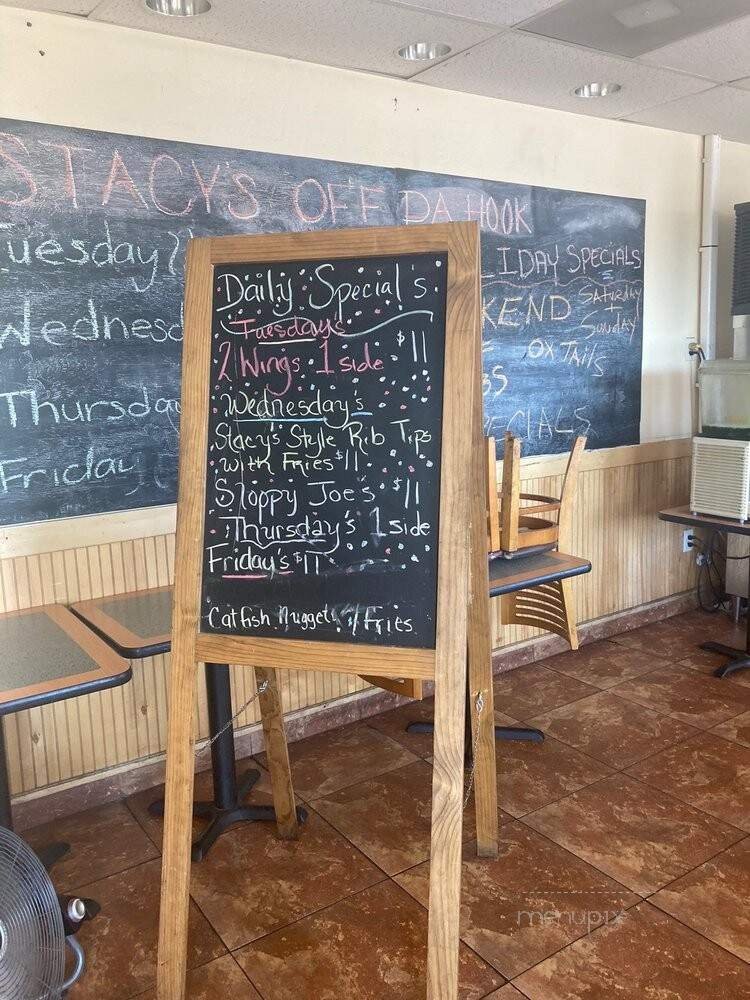 STACY'S OFF DA HOOK
Tuesday
Wednesd
Thursday
Friday
LIDAY SPECIALS
KEND Saturday
Sunday
OXTAILS
PECIALS
Daily Special's
Tuesday's
2 Wings 1 side $11
Wednesday's
Stacy's Style Rib Tips
with Fries $11
Sloppy Joe's $11
Thursday's 1 side
Friday's $11
Catfish Nuggets w/Fries
menupix